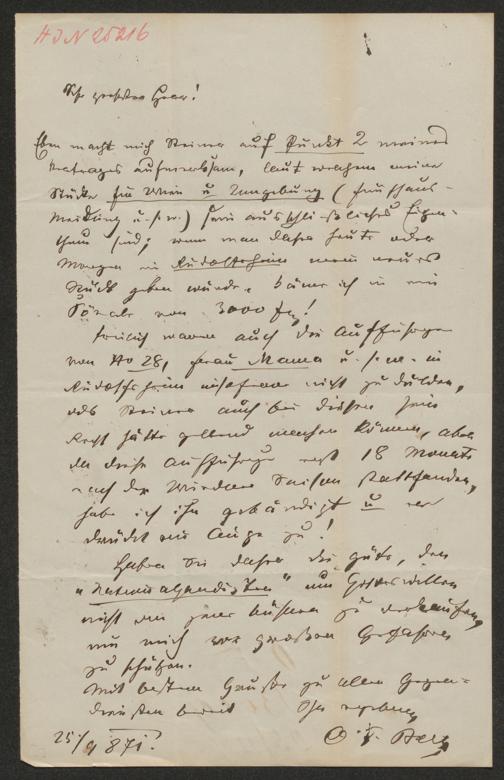 HIN 25216
Sehr geehrter Herr!
Eben macht mich Steiner auf Punkt 2 meines
Vertrages aufmerksam, laut welchem meine
Stücke für Wien u Umgebung (Fünfhaus-
Meidling u.s.w.) sein ausschließliches Eigen-
thum sind; wenn man daher heute oder
Morgen in Rudolfsheim mein neues
Stück geben würde, käme ich in ein
Pönale von 3000 fl!
Freilich waren auch die Aufführungen
von No 28, Frau Mama u.s.w. in
Rudolfsheim nicht zu dulden,
und Steiner auch bei diesen sein
Recht hätte geltend machen können, aber
da diese Aufführungen erst 18 Monate
nach der Wiedner Saison stattfanden,
habe ich ihn gebändigt u er
drückt ein Auge zu!
Haben Sie daher die Güte, den
" um Gotteswillen
nicht an jene Bühnen zu verkaufen,
um mich vor großen Gefahren
zu schützen.
Mit bestem Gruße zu allen Gegen-
diensten bereit Ihr ergebener
25/9 871. O. F. Berg